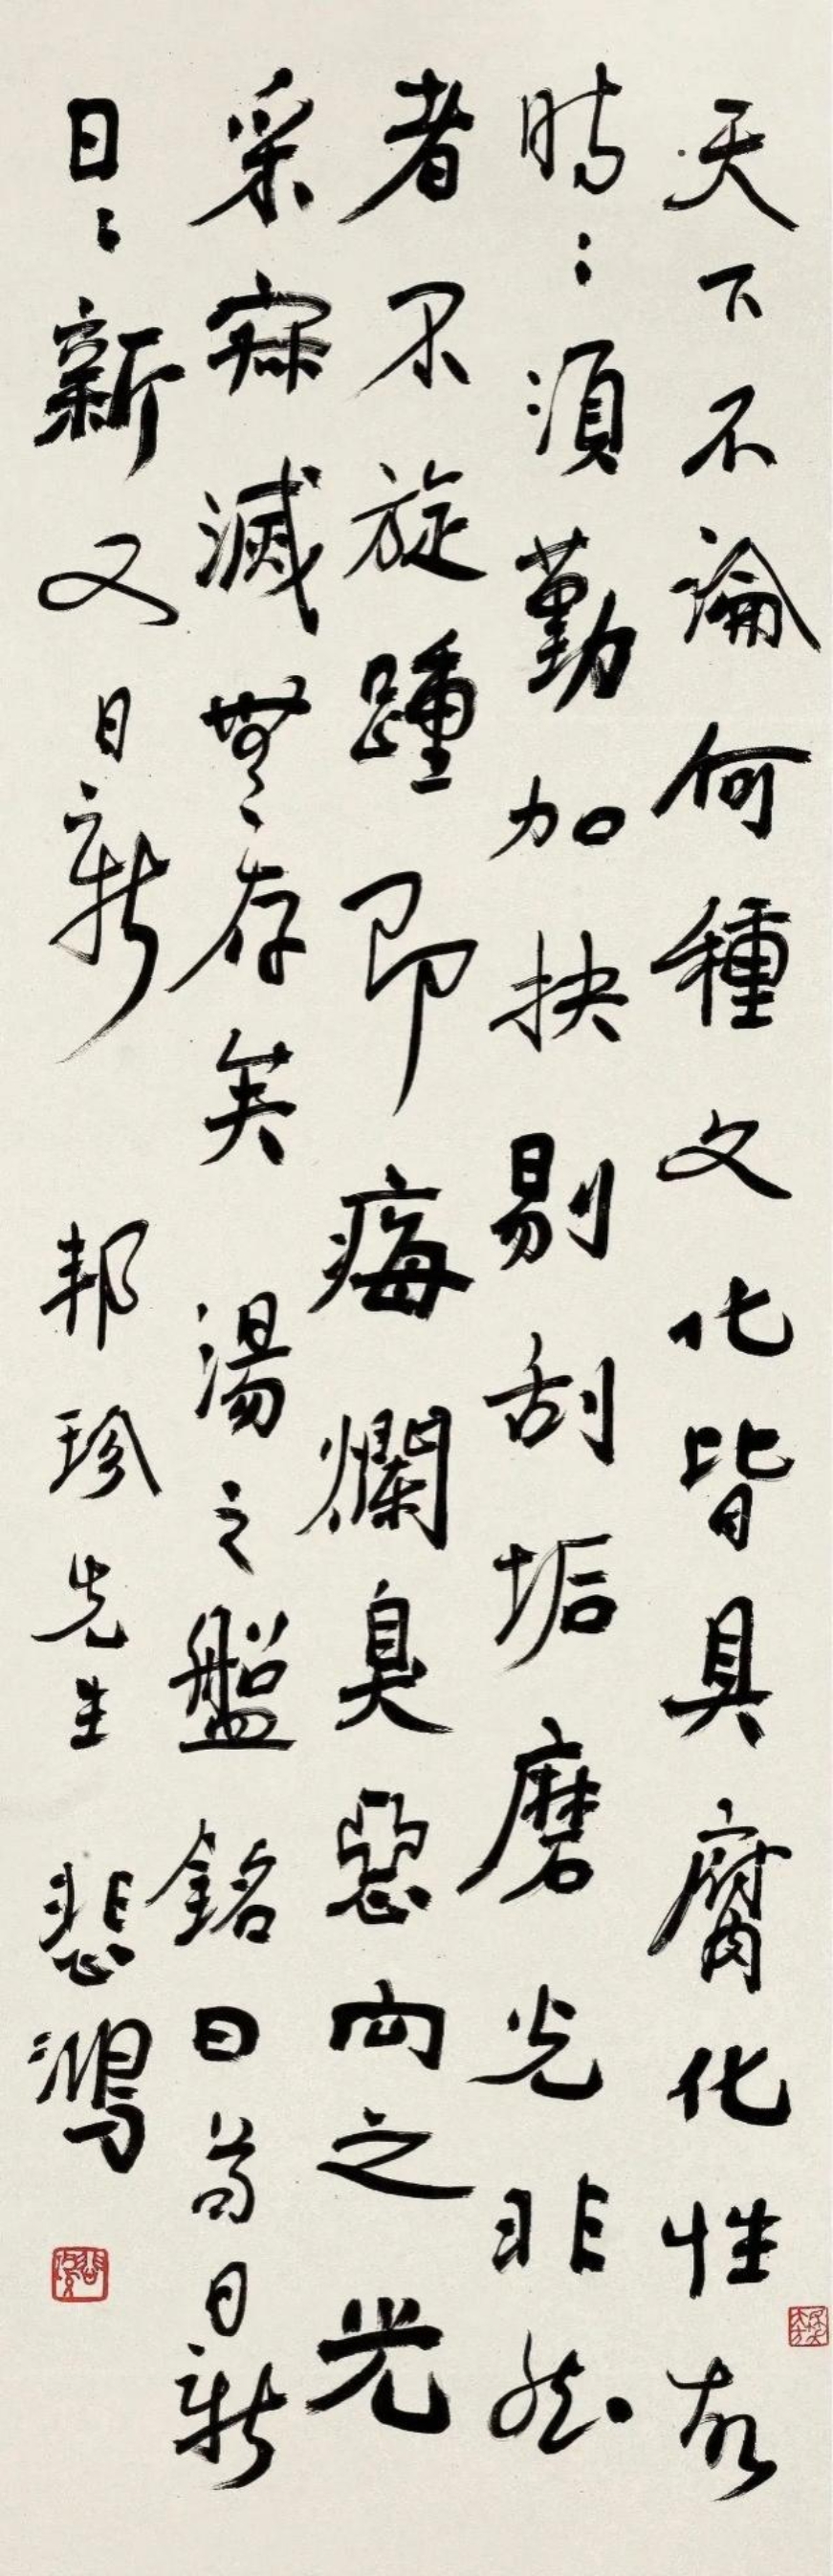 天下不論何種文化皆具腐化性故
時々須勤加抉剔刮垢磨光非然
者不旋踵即痗爛臭惡向之光
采寂滅無存矣 湯之盤銘曰苟日新
日々新又日新 邦珍先生 悲鴻